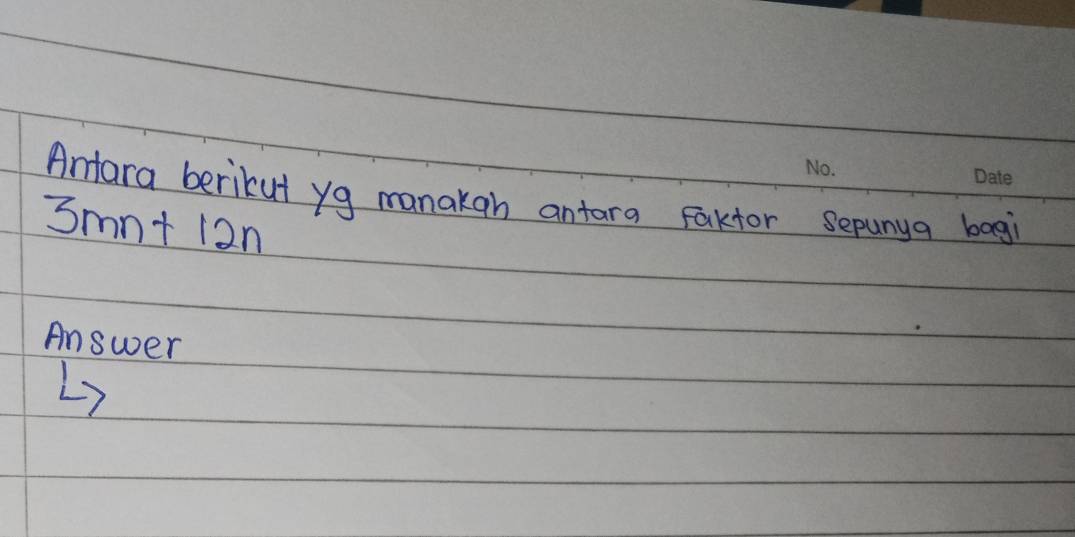 No. Date
Antara berikut yg manakah antara faktor sepunya bagi
3mn + 12n
Answer
↳